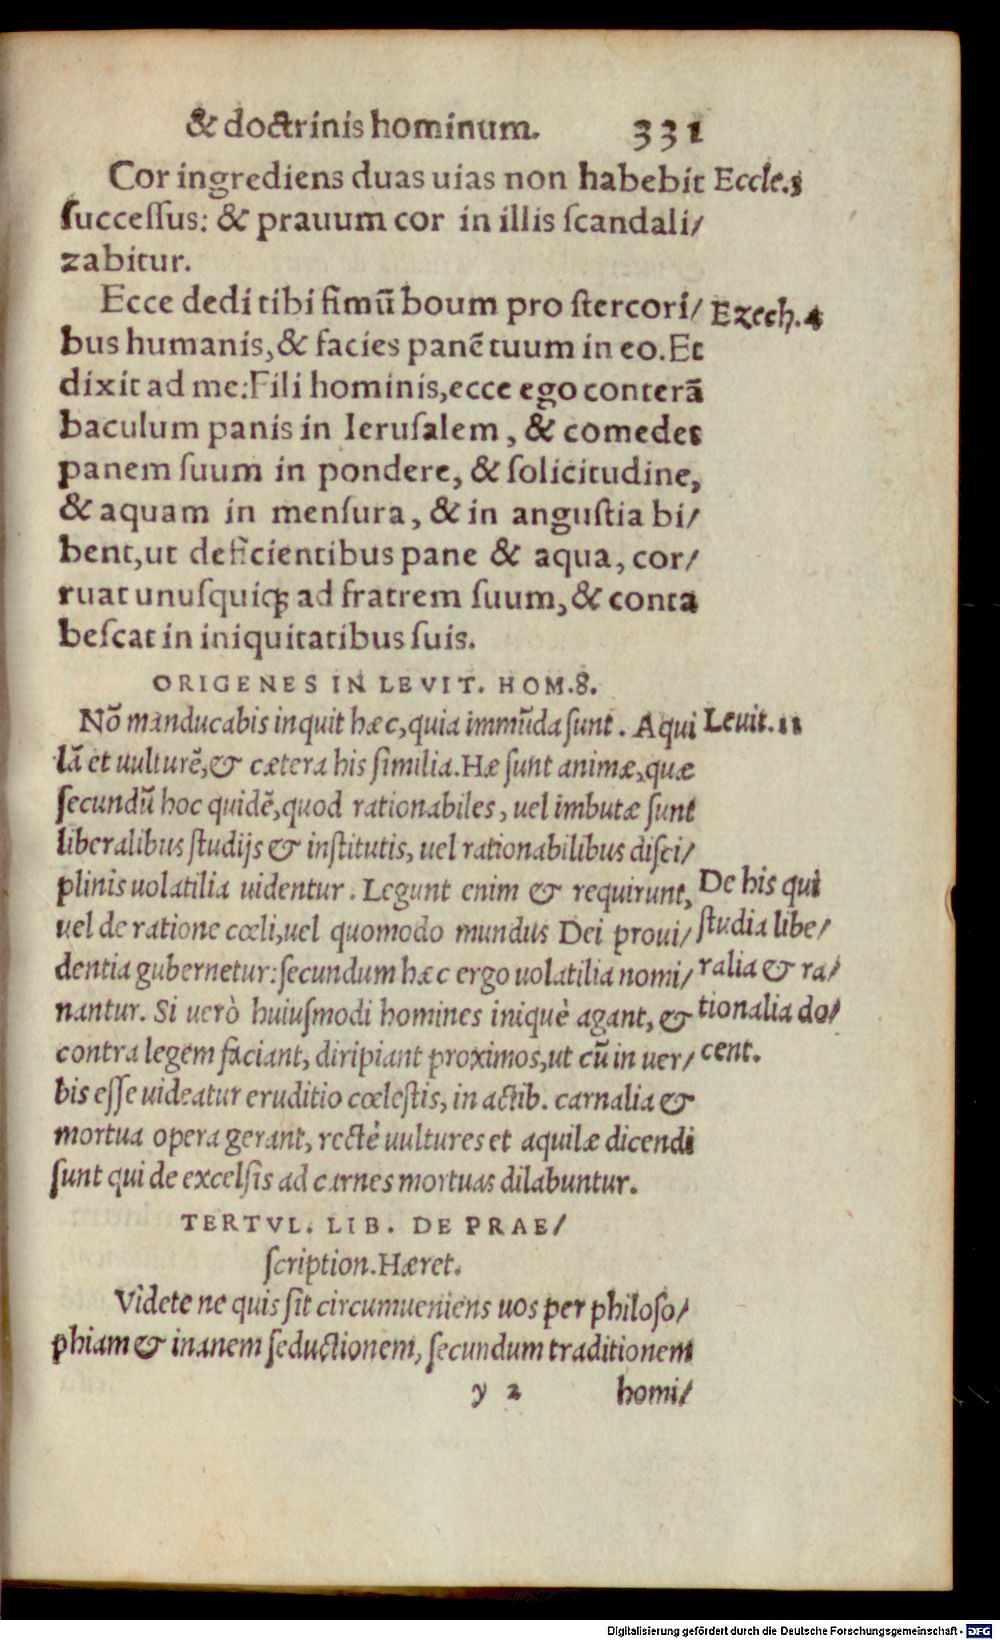 & doctrinis hominum. 331
Cor ingrediens duas uias non habebit Eccle.3
ſucceſſus: & prauum cor in illis ſcandali/
zabitur.
Ecce dedi tibi fimū boum pro ſtercori/ Ezech.4
bus humanis, & facies panē tuum in eo. Et
dixit ad me: Fili hominis, ecce ego conterā
baculum panis in Ieruſalem, & comedet
panem ſuum in pondere, & ſolicitudine,
& aquam in menſura, & in anguſtia bi/
bent, ut deficientibus pane & aqua, cor/
ruat unuſquiq; ad fratrem ſuum, & conta
beſcat in iniquitatibus ſuis.
ORIGENES IN LEVIT. HOM.8.
Nō manducabis inquit hæc, quia immūda ſunt. Aqui Leuit.11
lā et uulturē, & cætera his ſimilia. Hæ ſunt animæ, quæ
ſecundū hoc quidē, quod rationabiles, uel imbutæ ſunt
liberalibus ſtudijs & inſtitutis, uel rationabilibus diſci/
plinis uolatilia uidentur. Legunt enim & requirunt, De his qui
uel de ratione cœli, uel quomodo mundus Dei proui/ ſtudia libe/
dentia gubernetur: ſecundum hæc ergo uolatilia nomi/ ralia & ra/
nantur. Si uerò huiuſmodi homines iniquè agant, & tionalia do/
contra legem faciant, diripiant proximos, ut cū in uer/ cent.
bis eſſe uideatur eruditio cœleſtis, in actib. carnalia &
mortua opera gerant, rectè uultures et aquilæ dicendi
ſunt qui de excelſis ad carnes mortuas dilabuntur.
TERTVL. LIB. DE PRAE/
ſcription. Hæret.
Videte ne quis ſit circumueniens uos per philoſo/
phiam & inanem ſeductionem, ſecundum traditionem
y 2 homi/
Digitalisierung gefördert durch die Deutsche Forschungsgemeinschaft - DFG